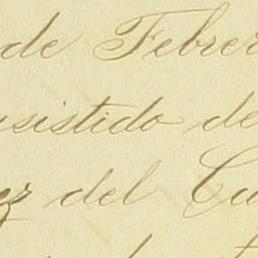 de Febrer
sistido de
ez del Cu